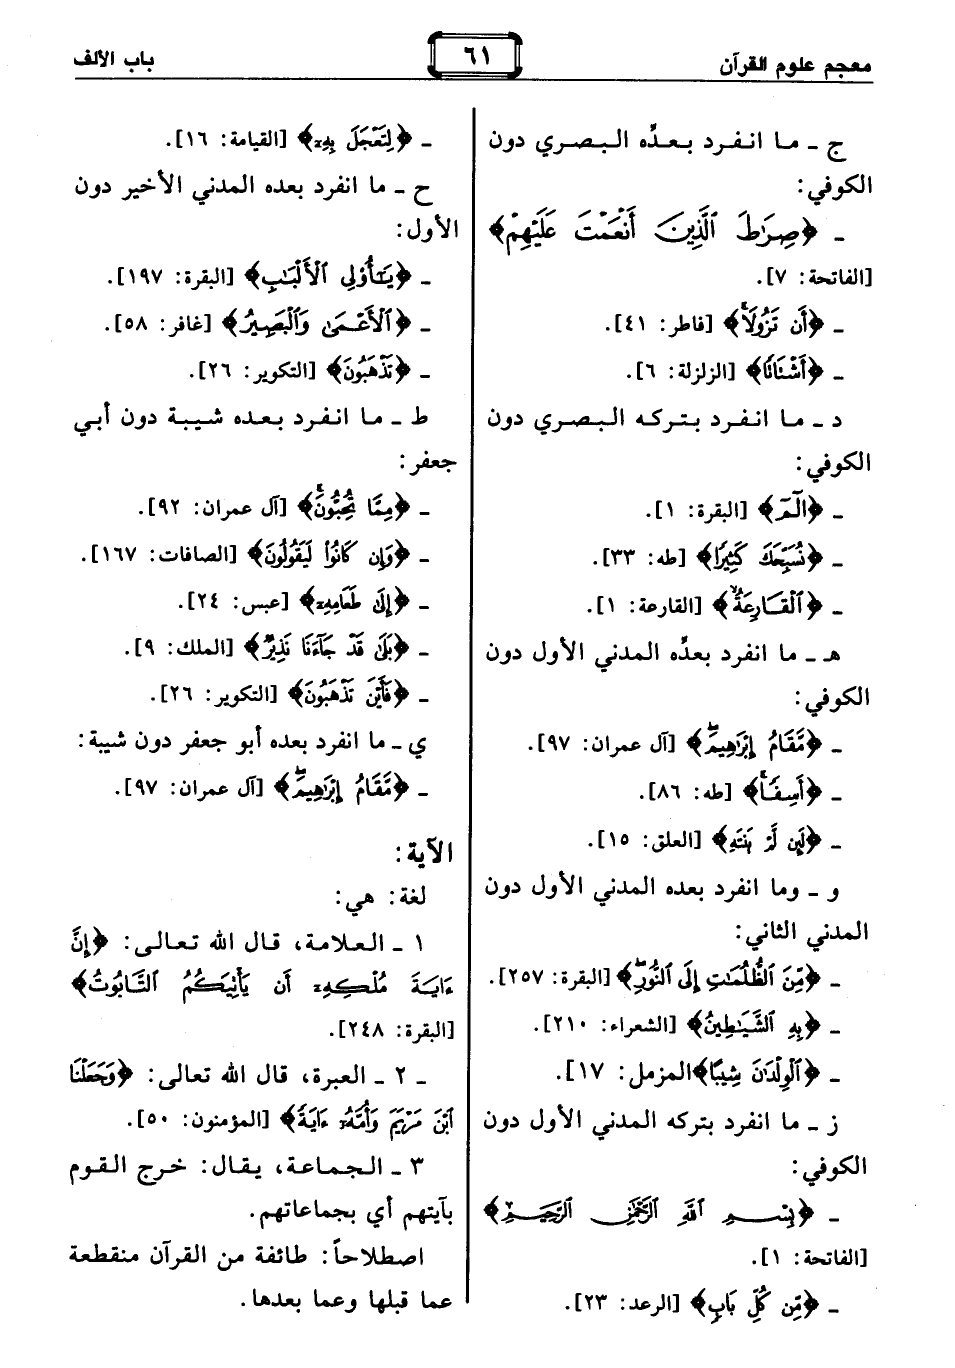 معجم علوم القرآن
٦١
باب الألف
ج ـ ما انفرد بعدِّه البصري دون
الكوفي:
ـ ﴿صِرَٰطَ ٱلَّذِينَ أَنۡعَمۡتَ عَلَيۡهِمۡ﴾
[الفاتحة: ٧].
ـ ﴿أَن تَزُولَاۚ﴾ [فاطر: ٤١].
ـ ﴿أَشۡتَاتٗا﴾ [الزلزلة: ٦].
د ـ ما انفرد بتركه البصري دون
الكوفي:
ـ ﴿الٓمٓ﴾ [البقرة: ١].
ـ ﴿نُسَبِّحَكَ كَثِيرٗا﴾ [طه: ٣٣].
ـ ﴿ٱلۡقَارِعَةُ﴾ [القارعة: ١].
هـ ـ ما انفرد بعدِّه المدني الأول دون
الكوفي:
ـ ﴿مَّقَامُ إِبۡرَٰهِيمَۖ﴾ [آل عمران: ٩٧].
ـ ﴿أَسِفٗاۚ﴾ [طه: ٨٦].
ـ ﴿لَئِن لَّمۡ يَنتَهِ﴾ [العلق: ١٥].
و ـ وما انفرد بعده المدني الأول دون
المدني الثاني:
ـ ﴿مِّنَ ٱلظُّلُمَٰتِ إِلَى ٱلنُّورِۖ﴾ [البقرة: ٢٥٧].
ـ ﴿بِهِ ٱلشَّيَٰطِينُ﴾ [الشعراء: ٢١٠].
ـ ﴿ٱلۡوِلۡدَٰنَ شِيبًا﴾المزمل: ١٧].
ز ـ ما انفرد بتركه المدني الأول دون
الكوفي:
ـ ﴿بِسۡمِ ٱللَّهِ ٱلرَّحۡمَٰنِ ٱلرَّحِيمِ﴾
[الفاتحة: ١].
ـ ﴿مِّن كُلِّ بَابٖ﴾ [الرعد: ٢٣].
ـ ﴿لِتَعۡجَلَ بِهِۦٓ﴾ [القيامة: ١٦].
ح ـ ما انفرد بعده المدني الأخير دون
الأول:
ـ ﴿يَٰٓأُوْلِي ٱلۡأَلۡبَٰبِ﴾ [البقرة: ١٩٧].
ـ ﴿ٱلۡأَعۡمَىٰ وَٱلۡبَصِيرُ﴾ [غافر: ٥٨].
ـ ﴿تَذۡهَبُونَ﴾ [التكوير: ٢٦].
ط ـ ما انفرد بعده شيبة دون أبي
جعفر:
ـ ﴿مِمَّا تُحِبُّونَۚ﴾ [آل عمران: ٩٢].
ـ ﴿وَإِن كَانُواْ لَيَقُولُونَ﴾ [الصافات: ١٦٧].
ـ ﴿إِلَىٰ طَعَامِهِۦٓ﴾ [عبس: ٢٤].
ـ ﴿بَلَىٰ قَدۡ جَآءَنَا نَذِيرٞ﴾ [الملك: ٩].
ـ ﴿فَأَيۡنَ تَذۡهَبُونَ﴾ [التكوير: ٢٦].
ي ـ ما انفرد بعده أبو جعفر دون شيبة:
ـ ﴿مَّقَامُ إِبۡرَٰهِيمَۖ﴾ [آل عمران: ٩٧].
الآية:
لغة: هي:
١ ـ العلامة، قال الله تعالى: ﴿إِنَّ
ءَايَةَ مُلۡكِهِۦٓ أَن يَأۡتِيَكُمُ ٱلتَّابُوتُ﴾
[البقرة: ٢٤٨].
ـ ٢ ـ العبرة، قال الله تعالى: ﴿وَجَعَلۡنَا
ٱبۡنَ مَرۡيَمَ وَأُمَّهُۥٓ ءَايَةٗ﴾ [المؤمنون: ٥٠].
٣ ـ الجماعة، يقال: خرج القوم
بآيتهم أي بجماعاتهم.
اصطلاحاً: طائفة من القرآن منقطعة
عما قبلها وعما بعدها.